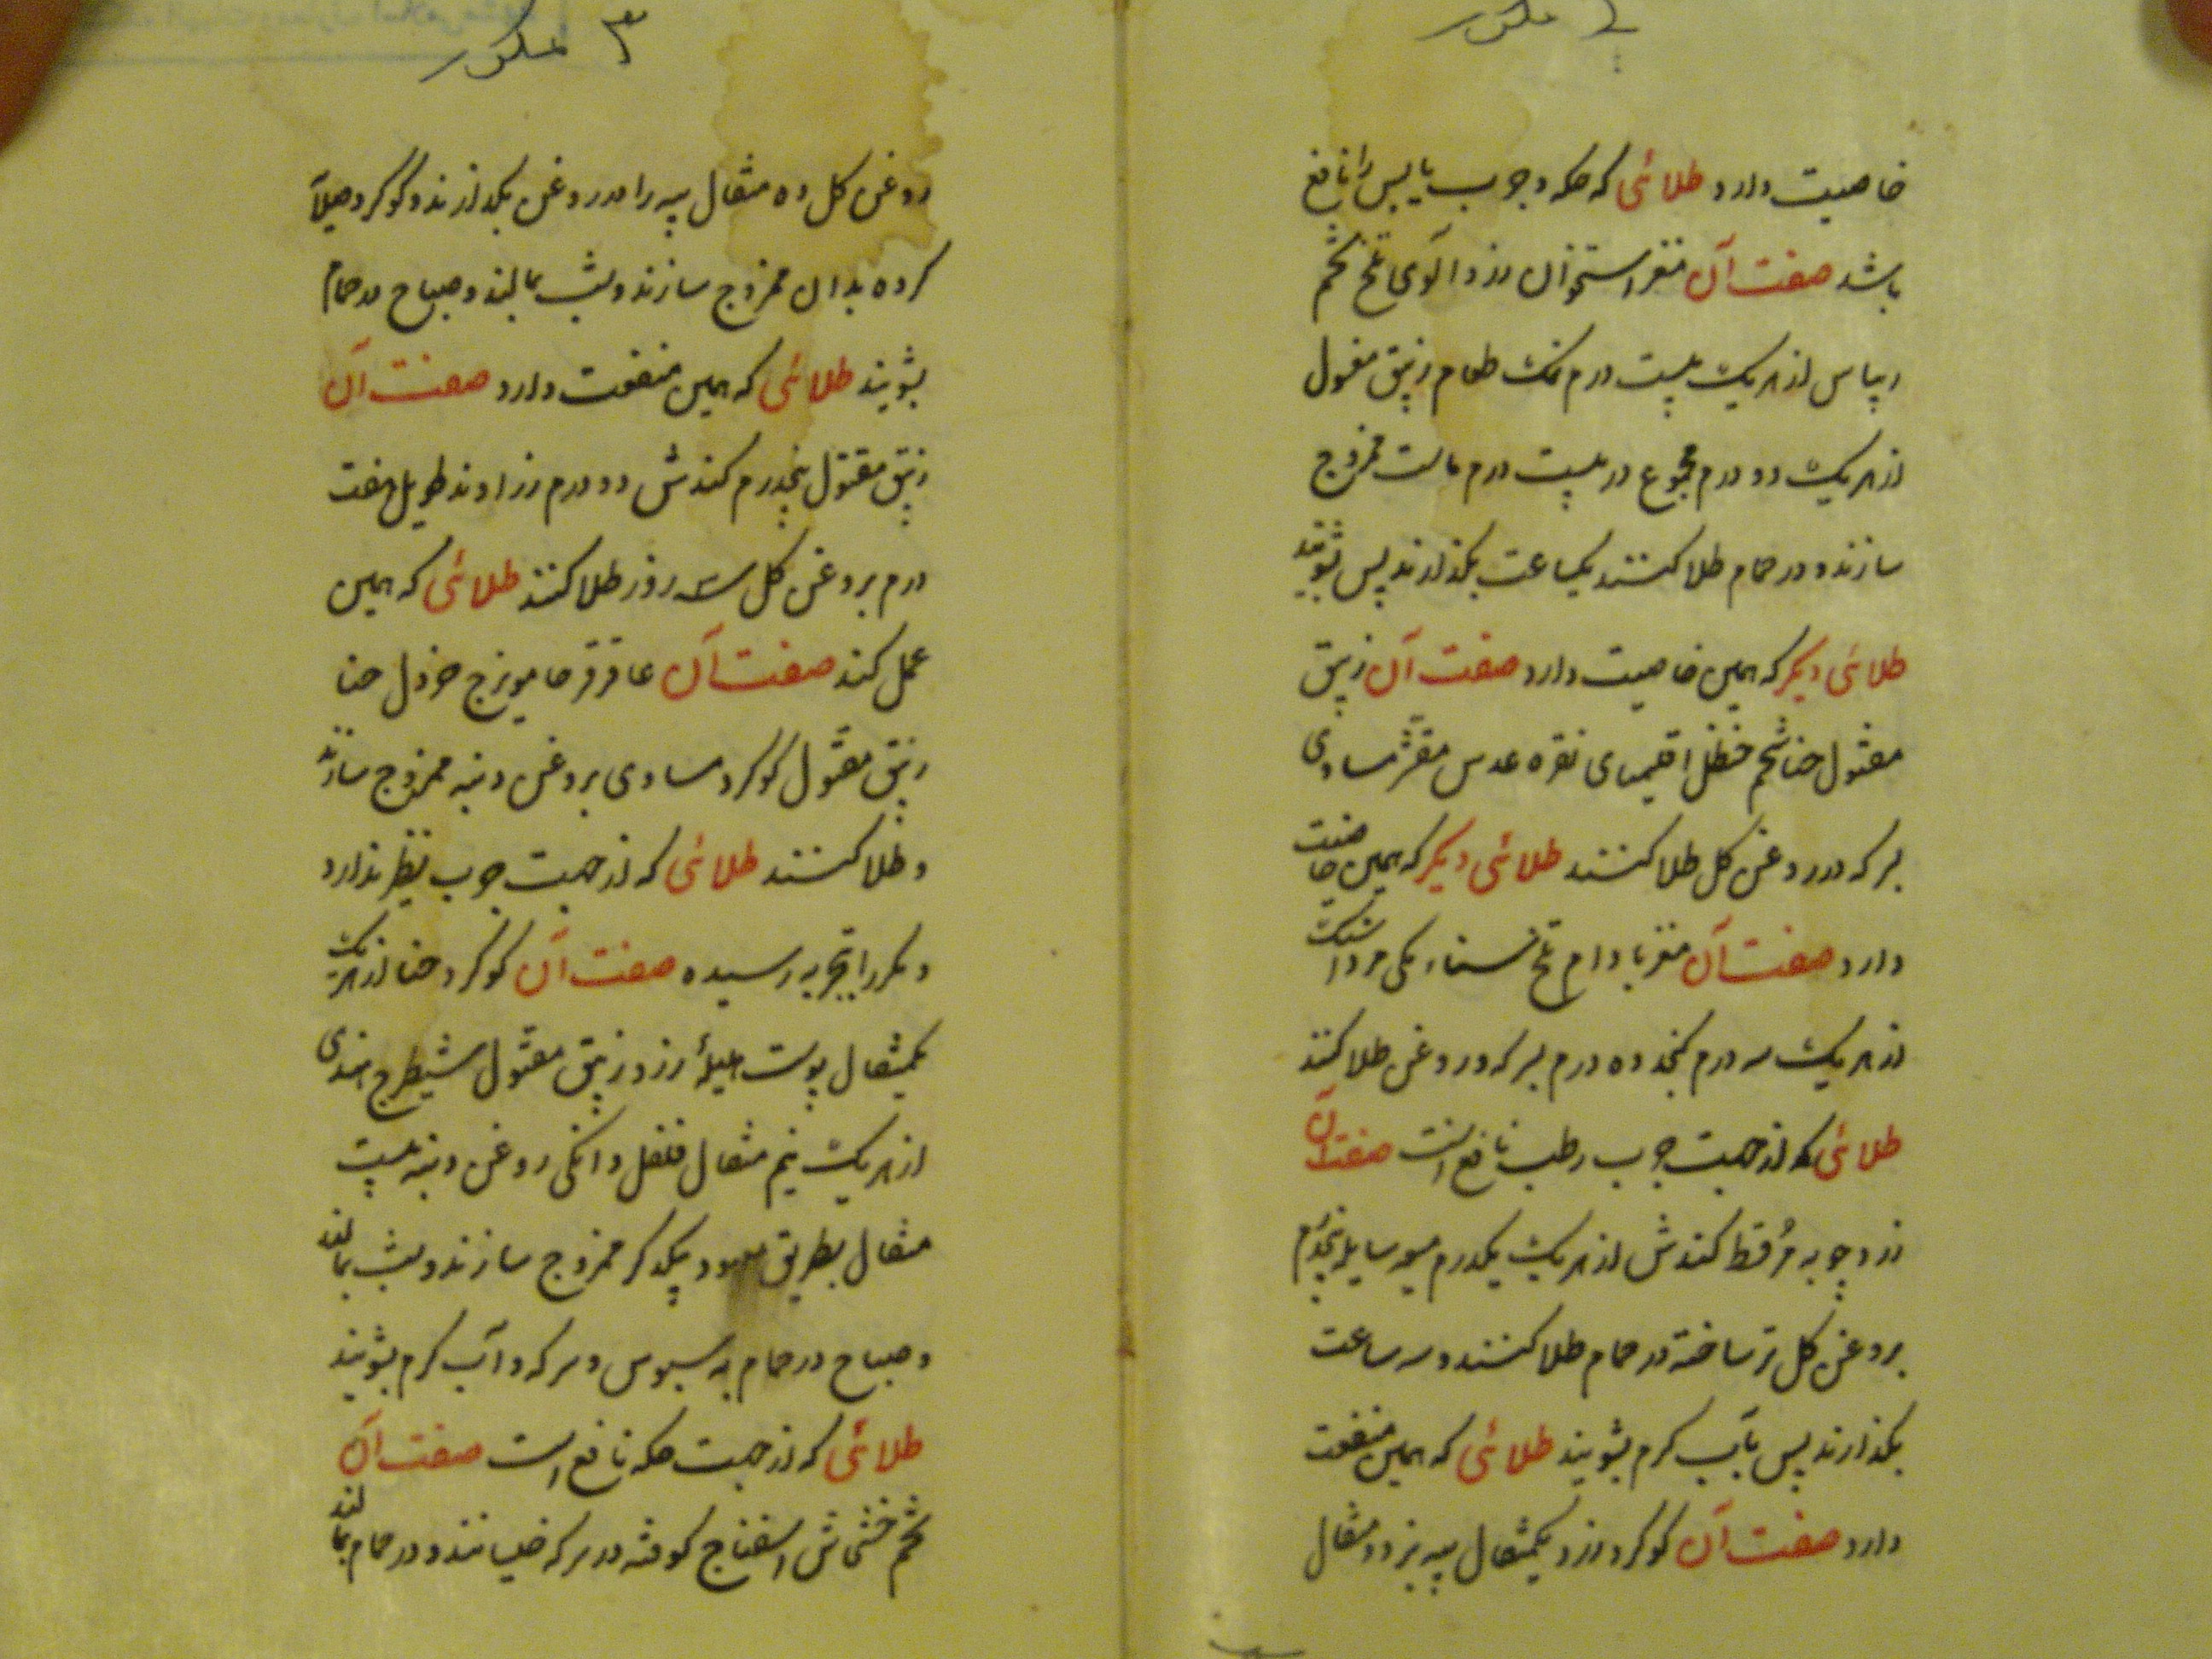 خاصیت دارد طلائی که حکه و جرب یابس را نافع
باشد صفت آن مغز استخوان زردآلوی تلخ تخم
ریباس از هریک بیست درم نمک طعام زیبق مقتول
از هریک دو درم مجموع در بیست درم ماست ممزوج
سازند و در حمام طلا کنند یکساعت بگذارند پس بشویند
طلائی دیگر که همین خاصیت دارد صفت آن زیبق
مقتول حنا شحم حنظل اقلیمیای نقره عدس مقشر مساوی
بسرکه و روغن گل طلا کنند طلائی دیگر که همین خاصیت
دارد صفت آن مغز بادام تلخ سناء مکی مرداسنگ
از هریک سه درم کنجد ده درم بسرکه و روغن طلا کنند
طلائی که از جهت جرب رطب نافع است صفت آن
زردچوبه مر قسط کندش از هریک یکدرم میعه سایله پنجدرم
بروغن گل تر ساخته در حمام طلا کنند و سه ساعت
بگذارند پس بآب گرم بشویند طلائی که همین منفعت
دارد صفت آن گوگرد زرد یکمثقال پیه بز دو مثقال
۳ مکرر
روغن گل ده مثقال پیه را در روغن بگدازند و گوگرد صلایه
کرده بدان ممزوج سازند و بشب بمالند و صباح در حمام
بشویند طلائی که همین منفعت دارد صفت آن
زیبق مقتول پنجدرم کندش دو درم زراوند طویل هفت
درم بروغن گل سه روز طلا کنند طلائی که همین
عمل کند صفت آن عاقرقرحا مویزج خردل حنا
زیبق مقتول گوگرد مساوی بروغن دنبه ممزوج سازند
و طلا کنند طلائی که از جهت جرب نظیر ندارد
و مکررا بتجربه رسیده صفت آن گوگرد حنا از هریک
یکمثقال پوست هلیلهٔ زرد زیبق مقتول شیطرج هندی
از هریک نیم مثقال فلفل دانگی روغن دنبه بیست
مثقال بطریق معهود بیکدگر ممزوج سازند و بشب بمالند
و صباح در حمام به سبوس و سرکه و آب گرم بشویند
طلائی که از جهت حکه نافع است صفت آن
تخم خشخاش اسفناج کوفته در سرکه خیسانند و در حمام بمالند